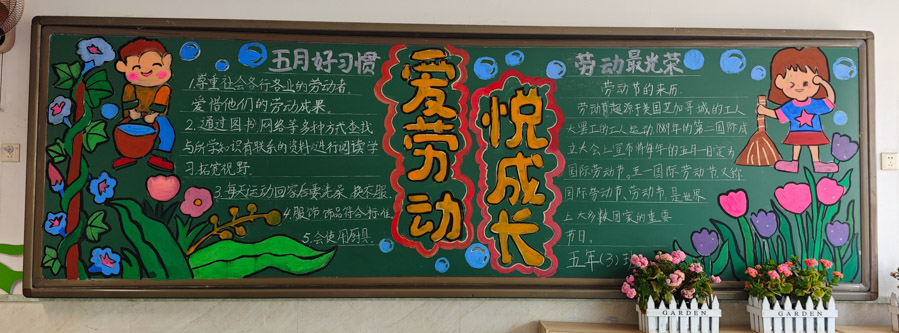 五月好习惯
1.尊重社会各行各业的劳动者,
爱惜他们的劳动成果。
2.通过图书、网络等多种方式查找
与所学知识有联系的资料进行阅读学
习拓宽视野.
3.每天运动回家后要洗澡、换衣服.
4.服饰、饰品符合标准
5.会使用厨具.
爱劳动
悦成长
劳动最光荣
劳动节的来历
劳动节起源于美国芝加哥城的工人
大罢工的工人运动.1889年的第二国际成
立大会上宣布将每年的五月一日定为
国际劳动节。五一国际劳动节又称
国际劳动节、劳动节,是世界
上大多数国家的重要
节日。
五年(3)
GARDEN
GARDEN